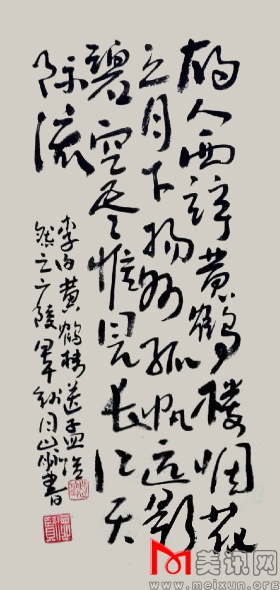 故人西辞黄鹤楼烟花
三月下扬州孤帆远影
碧空尽惟见长江天
际流
李白黄鹤楼送孟浩
然之广陵
美讯网
www.meixun.org